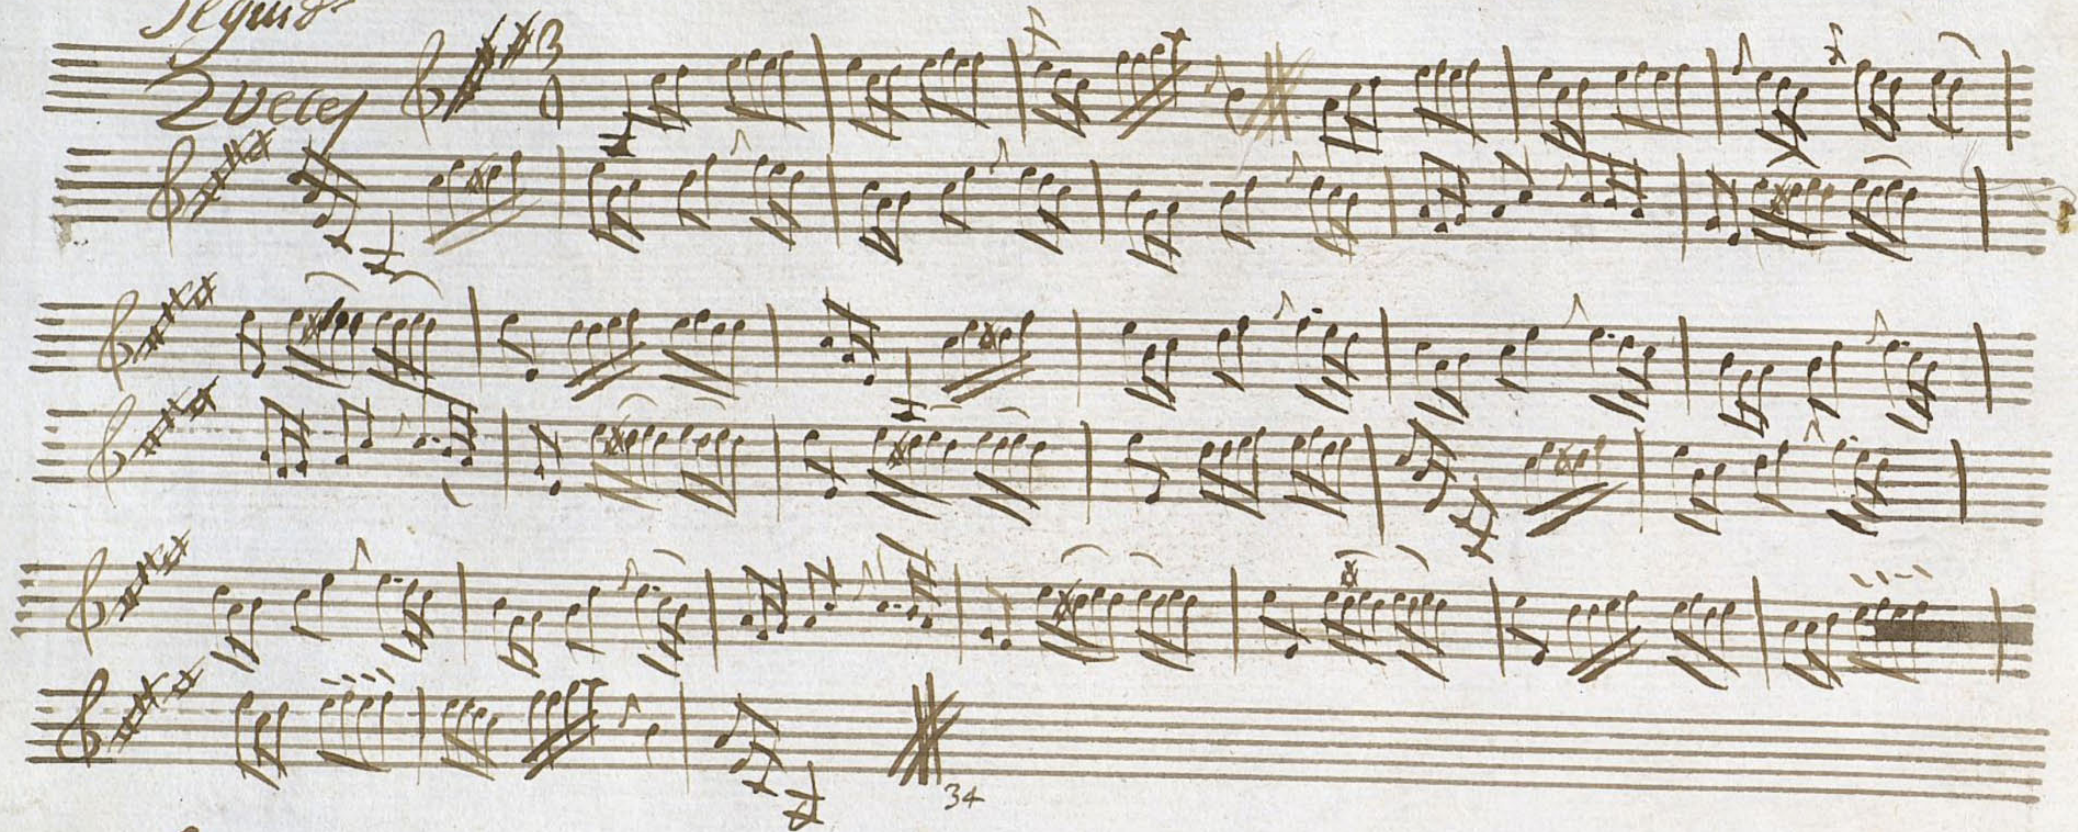 Seguids
2 veces
34